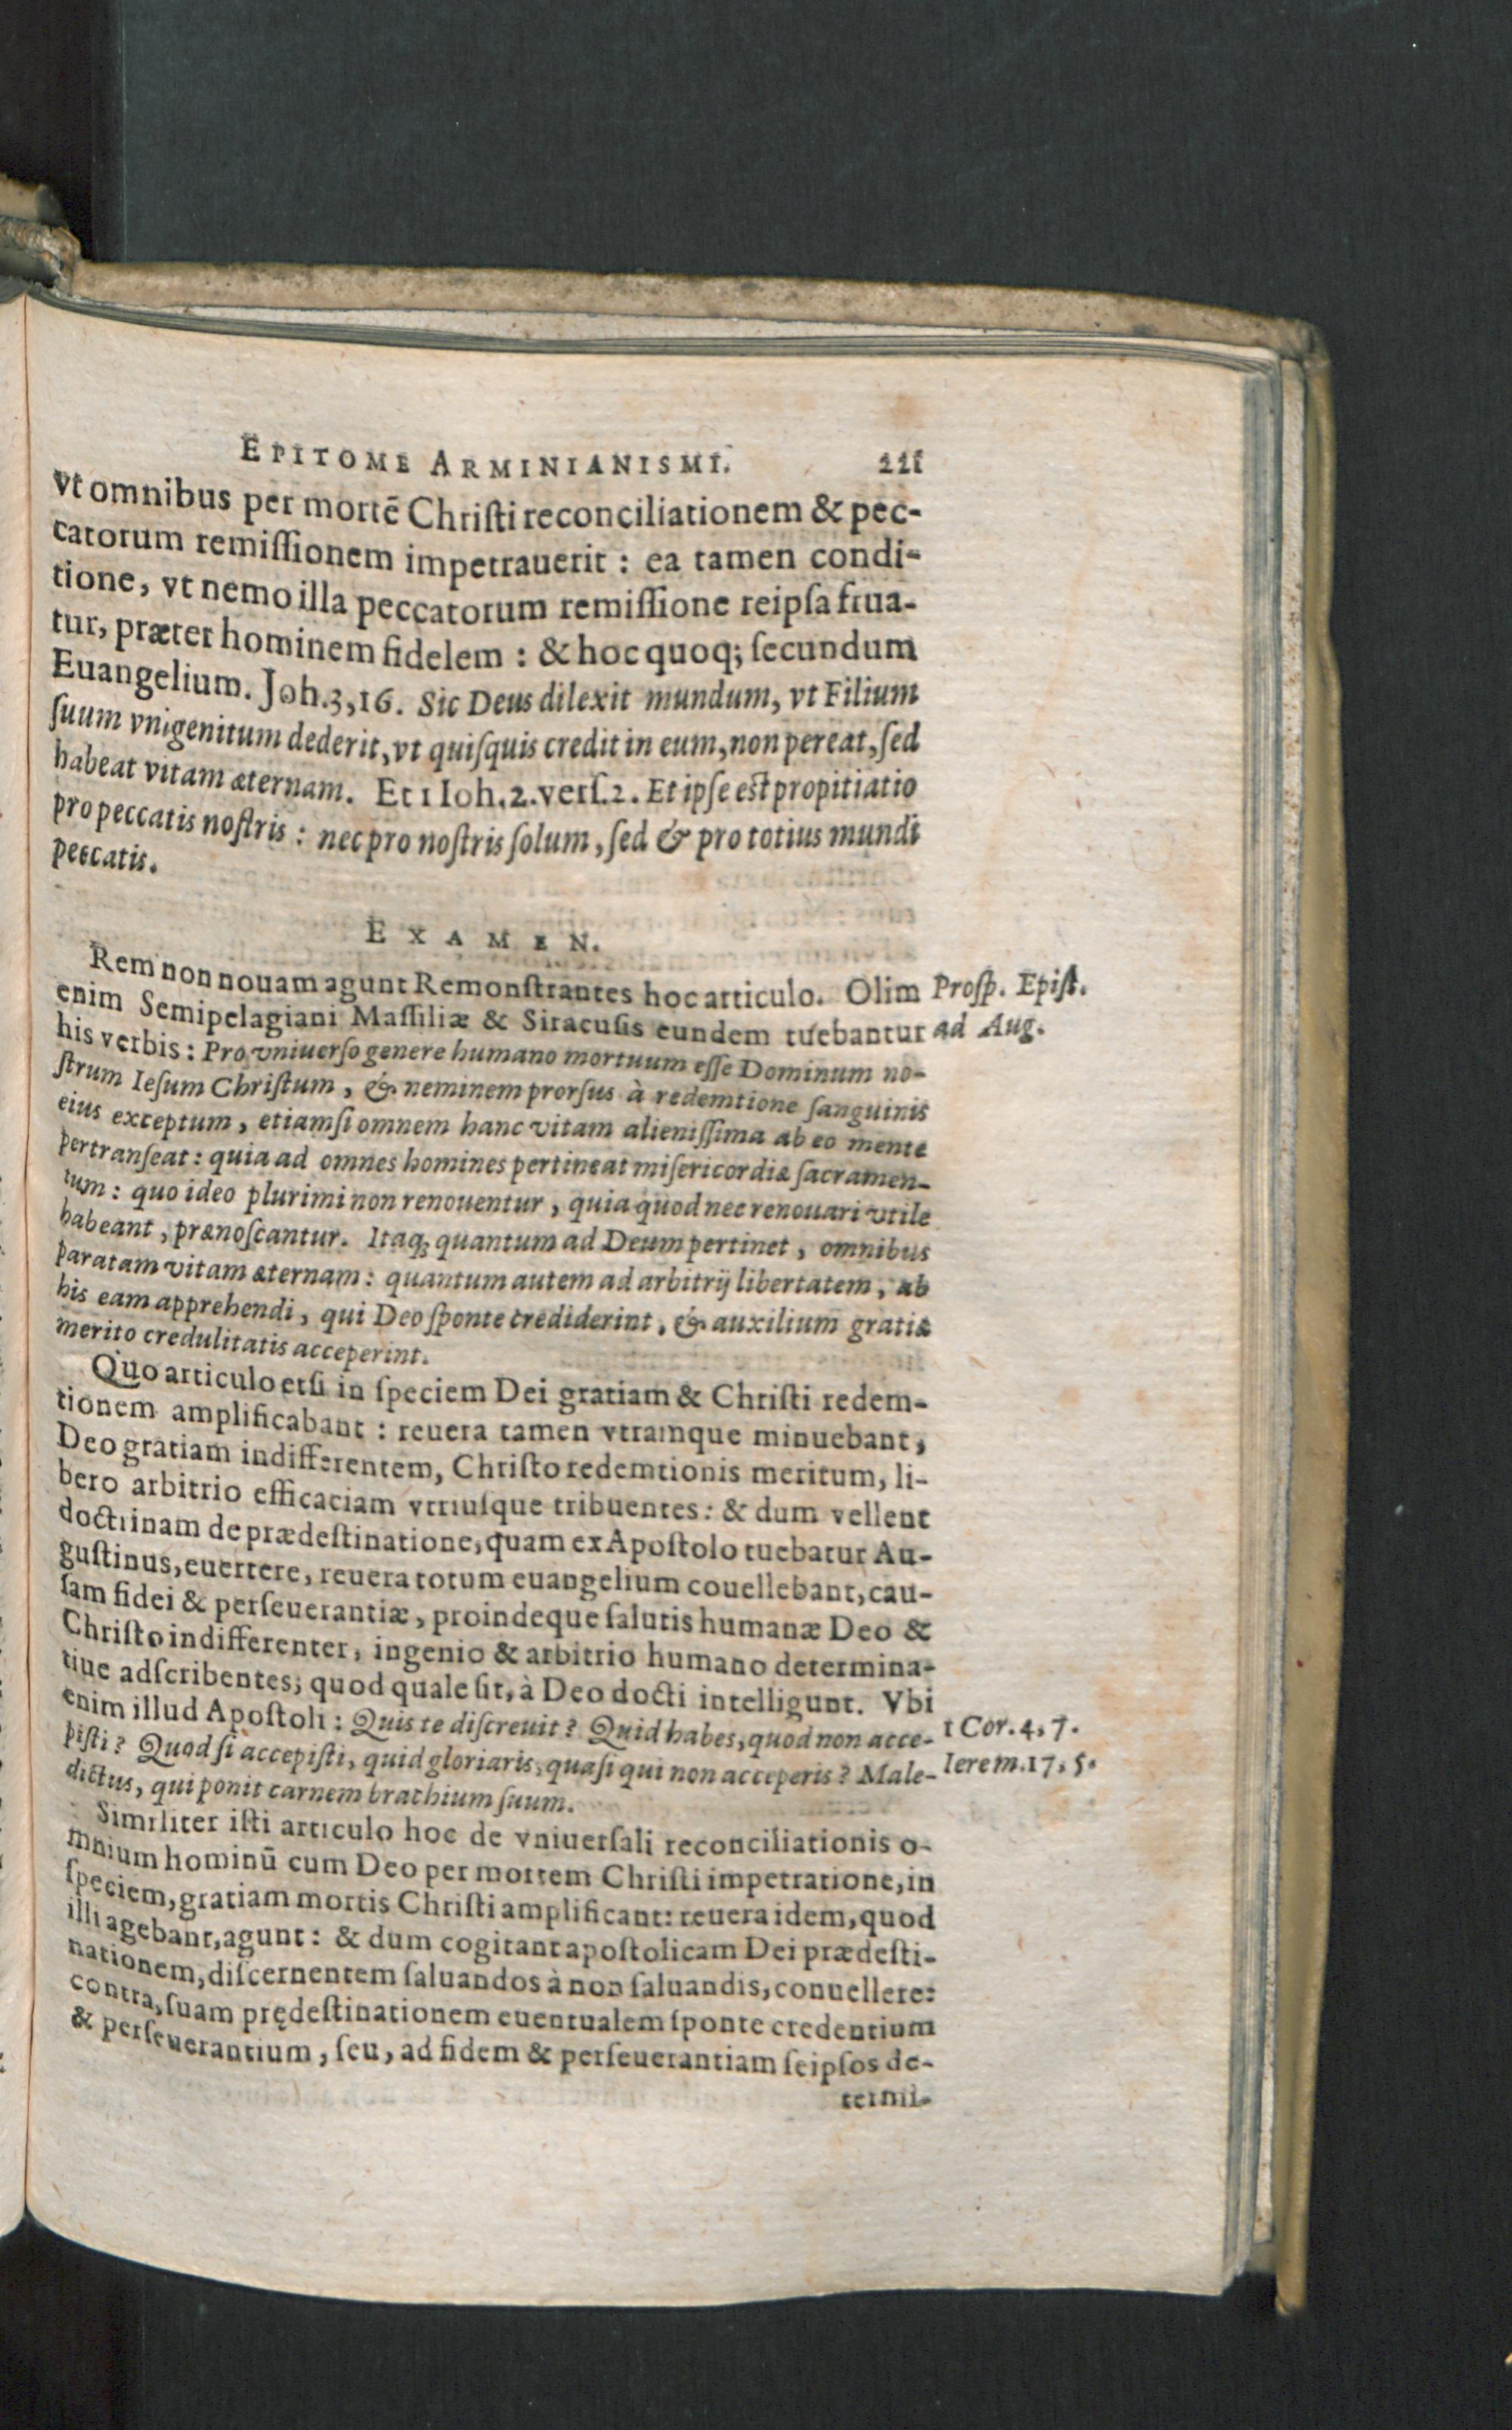 EPITOME ARMINIANISMI. 111
vt omnibus per mortē Chriſti reconciliationem & pec-
catorum remiſſionem impetrauerit : ea tamen condi-
tione, vt nemo illa peccatorum remiſſione reipſa frua-
tur, præter hominem fidelem : & hoc quoq; ſecundum
Euangelium. Joh.3,16. Sic Deus dilexit mundum, vt Filium
ſuum vnigenitum dederit, vt quiſquis credit in eum, non pereat, ſed
habeat vitam æternam. Et 1 Ioh.2.verſ.2. Et ipſe eſt propitiatio
pro peccatis noſtris : nec pro noſtris ſolum, ſed & pro totius mundi
peccatis.
EXAMEN.
Rem non nouam agunt Remonſtrantes hoc articulo. Olim
Proſp. Epiſt.
enim Semipelagiani Maſſiliæ & Siracuſis eundem tuebantur
ad Aug.
his verbis : Pro vniuerſo genere humano mortuum eſſe Dominum no-
ſtrum Ieſum Chriſtum, & neminem prorſus à redemtione ſanguinis
eius exceptum, etiamſi omnem hanc vitam alieniſſima ab eo mente
pertranſeat : quia ad omnes homines pertineat miſericordiæ ſacramen-
tum : quo ideo plurimi non renouentur, quia quod nec renouari vtile
habeant, prænoſcantur. Itaq; quantum ad Deum pertinet, omnibus
paratam vitam æternam : quantum autem ad arbitrij libertatem, ab
his eam apprehendi, qui Deo ſponte crediderint, & auxilium gratiæ
merito credulitatis acceperint.
Quo articulo etſi in ſpeciem Dei gratiam & Chriſti redem-
tionem amplificabant : reuera tamen vtramque minuebant,
Deo gratiam indifferentem, Chriſto redemtionis meritum, li-
bero arbitrio efficaciam vtriuſque tribuentes : & dum vellent
doctrinam de prædeſtinatione, quam ex Apoſtolo tuebatur Au-
guſtinus, euertere, reuera totum euangelium couellebant, cau-
ſam fidei & perſeuerantiæ, proindeque ſalutis humanæ Deo &
Chriſto indifferenter, ingenio & arbitrio humano determina-
tiue adſcribentes; quod quale ſit, à Deo docti intelligunt. Vbi
enim illud Apoſtoli : Quis te diſcreuit ? Quid habes, quod non acce-
1 Cor. 4, 7.
piſti ? Quod ſi accepiſti, quid gloriaris, quaſi qui non acceperis ? Male-
Ierem.17, 5.
dictus, qui ponit carnem brachium ſuum.
Similiter iſti articulo hoc de vniuerſali reconciliationis o-
mnium hominū cum Deo per mortem Chriſti impetratione, in
ſpeciem, gratiam mortis Chriſti amplificant : reuera idem, quod
illi agebant, agunt : & dum cogitant apoſtolicam Dei prædeſti-
nationem, diſcernentem ſaluandos à non ſaluandis, conuellere :
contra, ſuam prędeſtinationem euentualem ſponte credentium
& perſeuerantium, ſeu, ad fidem & perſeuerantiam ſeipſos de-
termi-